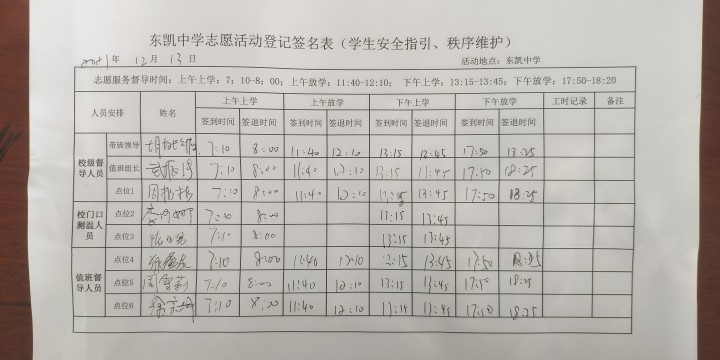 东凯中学志愿活动登记签名表（学生安全指引、秩序维护）
2021年 12月 13日 活动地点：东凯中学
志愿服务督导时间：上午上学：7：10-8：00；上午放学：11:40-12:10； 下午上学：13:15-13:45；下午放学：17:50-18:20
人员安排 姓名 上午上学 上午放学 下午上学 下午放学 工时记录 备注
签到时间 签退时间 签到时间 签退时间 签到时间 签退时间 签到时间 签退时间
校级督导人员 带班领导 7:10 8:00 11:40 12:10 13:15 13:45 17:50 18:25
值班组长 7:10 8:00 11:40 12:10 13:15 13:45 17:50 18:25
点位1 7:10 8:00 11:40 12:10 13:15 13:45 17:50 18:25
校门口测温人员 点位2 7:10 8:00 13:15 13:45
点位3 7:10 8:00 13:15 13:45
值班督导人员 点位4 7:10 8:00 11:40 12:10 13:15 13:45 17:50 18:25
点位5 周雪莉 7:10 8:00 11:40 12:10 13:15 13:45 17:50 18:25
点位6 7:10 8:00 11:40 12:10 13:15 13:45 17:50 18:25